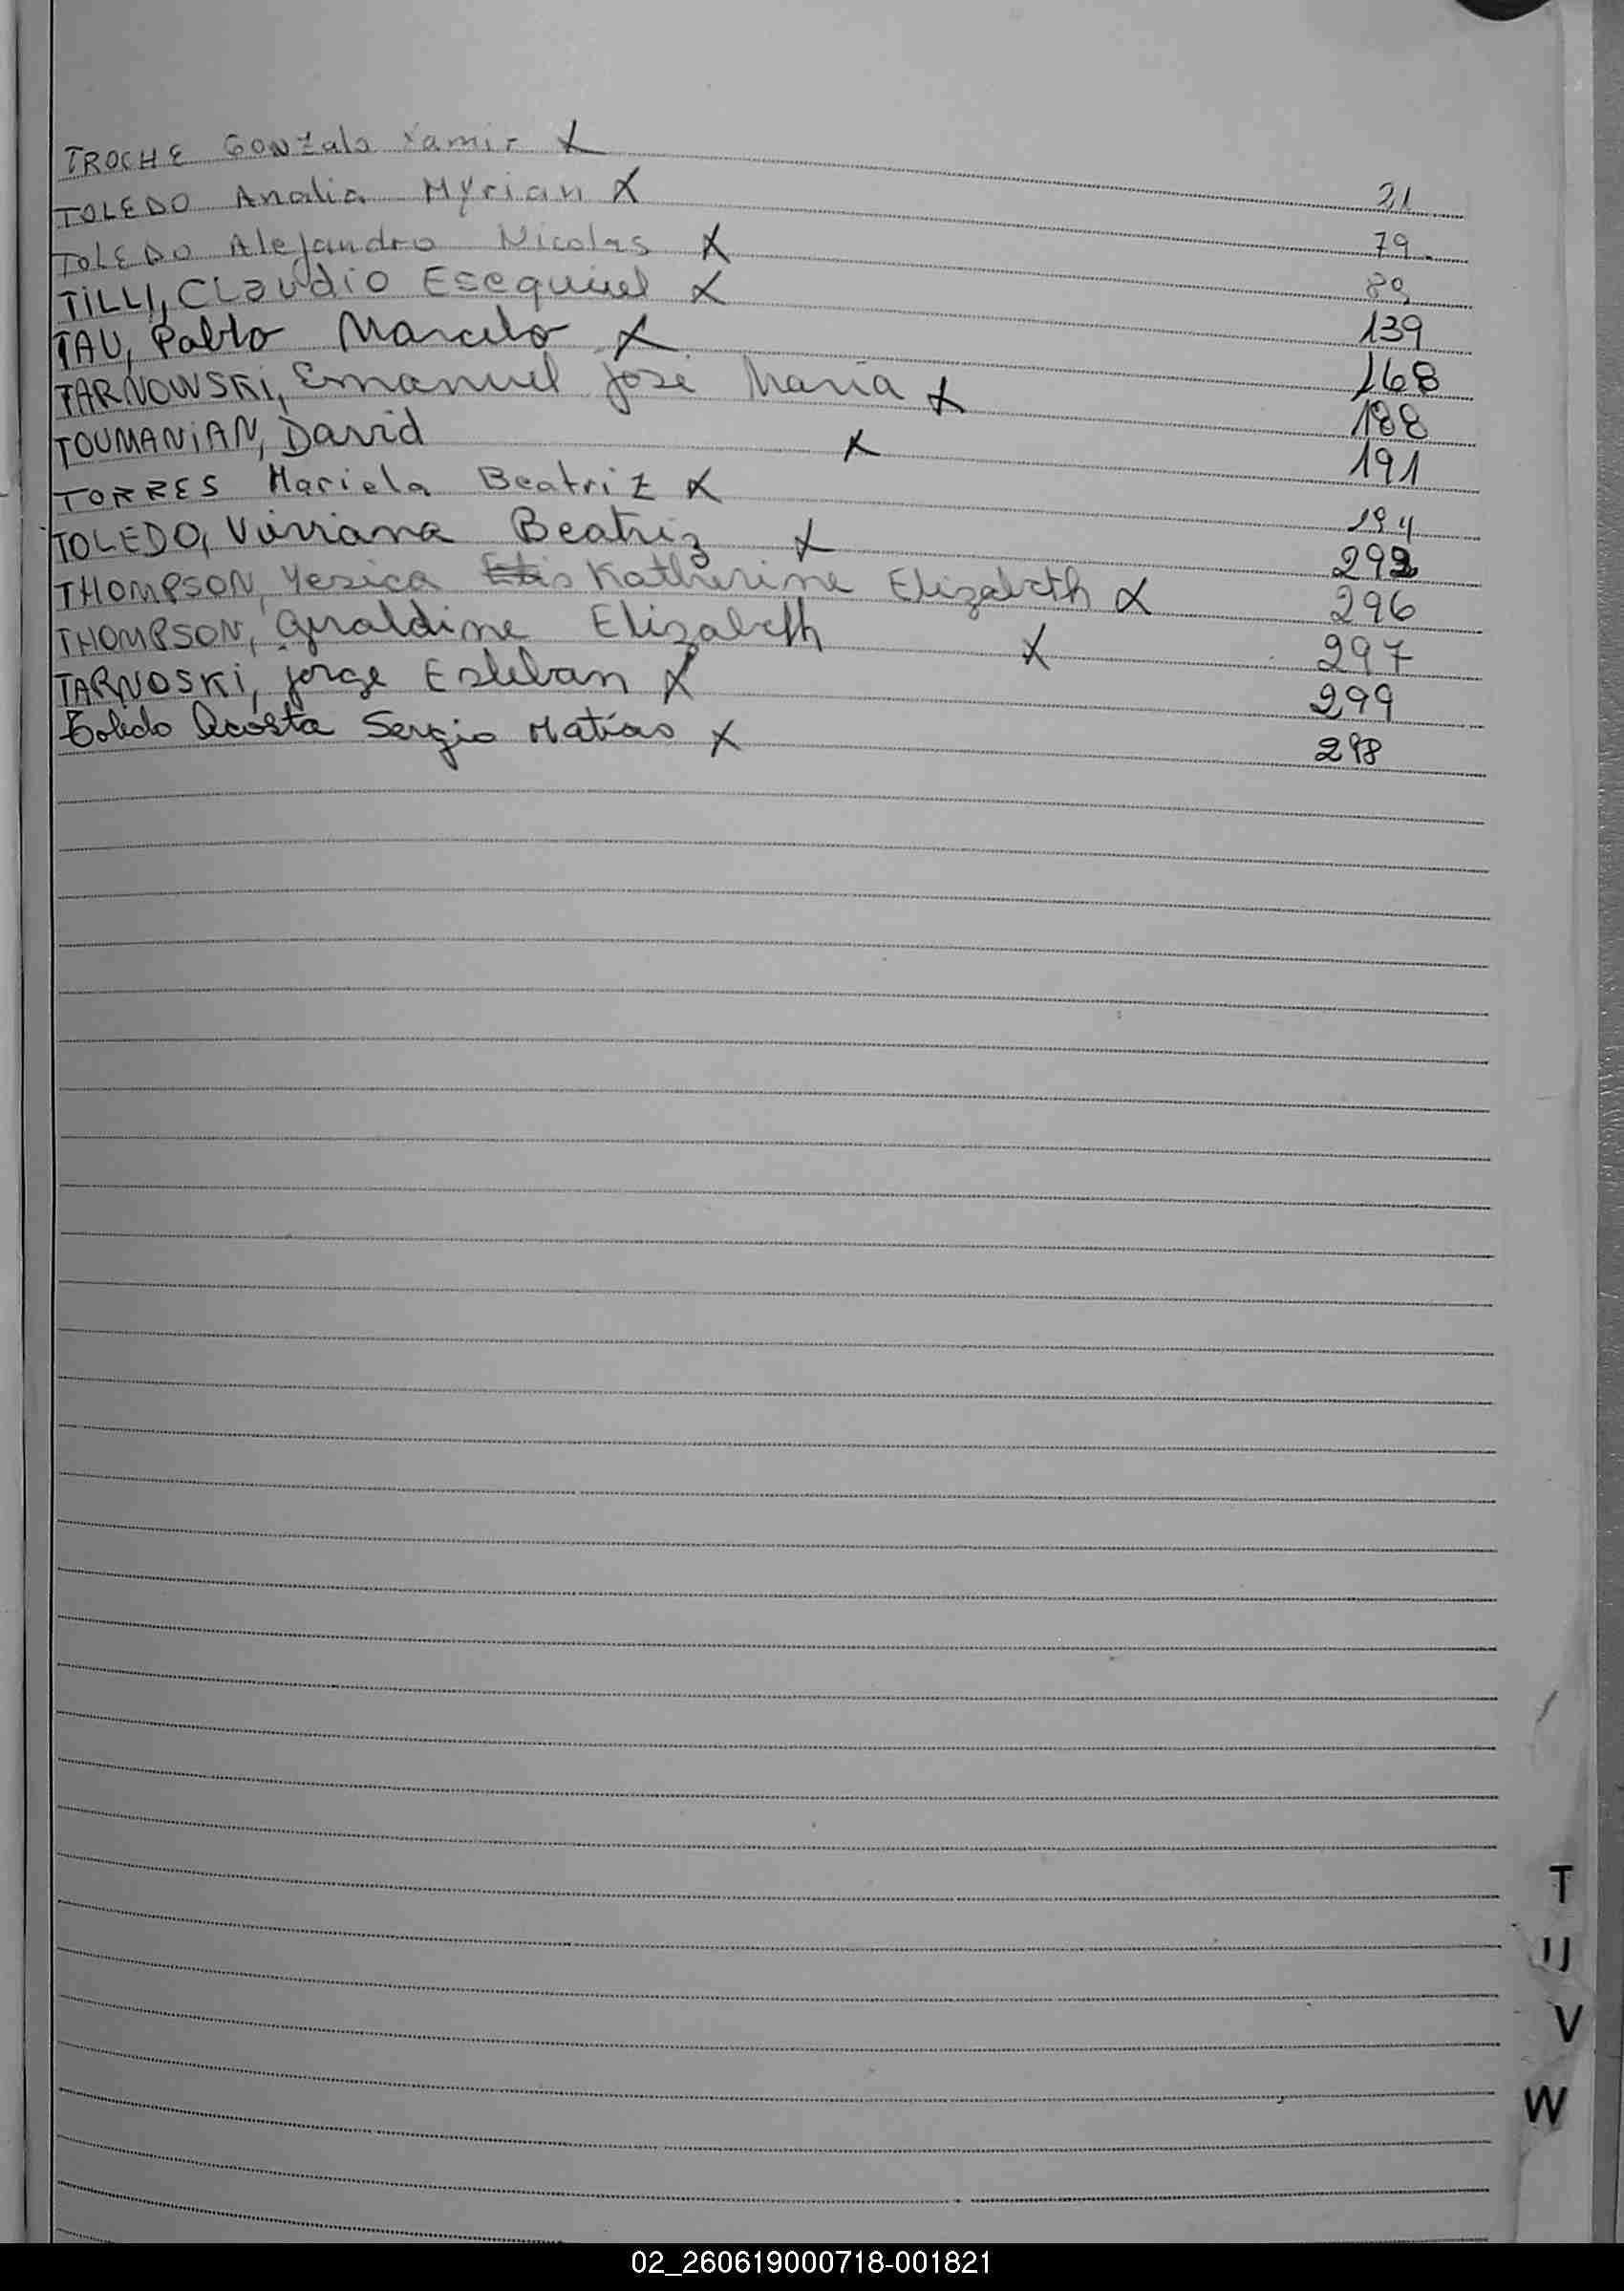 TROCHE Gonzalo Yamir X 21
TOLEDO Analia Myrian X 79
TOLEDO Alejandro Nicolas X 89
TILLI, Claudio Esequiel X 139
TAU, Pablo Marcelo X 168
TARNOWSKI, Emanuel José Maria X 188
TOUMANIAN, David X 191
TORRES Mariela Beatriz X 194
TOLEDO, Viviana Beatriz X 292
THOMPSON, Yesica Katherine Elizabeth X 296
THOMPSON, Geraldine Elizabeth X 297
TARNOSKI, Jorge Esteban X 299
Toledo Acosta Sergio Matías X 298
T
U
V
W
02_260619000718-001821